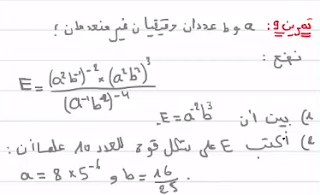 تمرين 9: a و b عددان حقيقيان غير منعدمان؛
نضع:
E = (a²b⁻¹)⁻² × (a²b³)³ / (a⁻¹b⁻²)⁻⁴
1) بين أن E = a⁻²b³.
2) أكتب E على شكل قوة للعدد 10 علما أن:
a = 8 × 5⁻⁶ و b = 16/25.